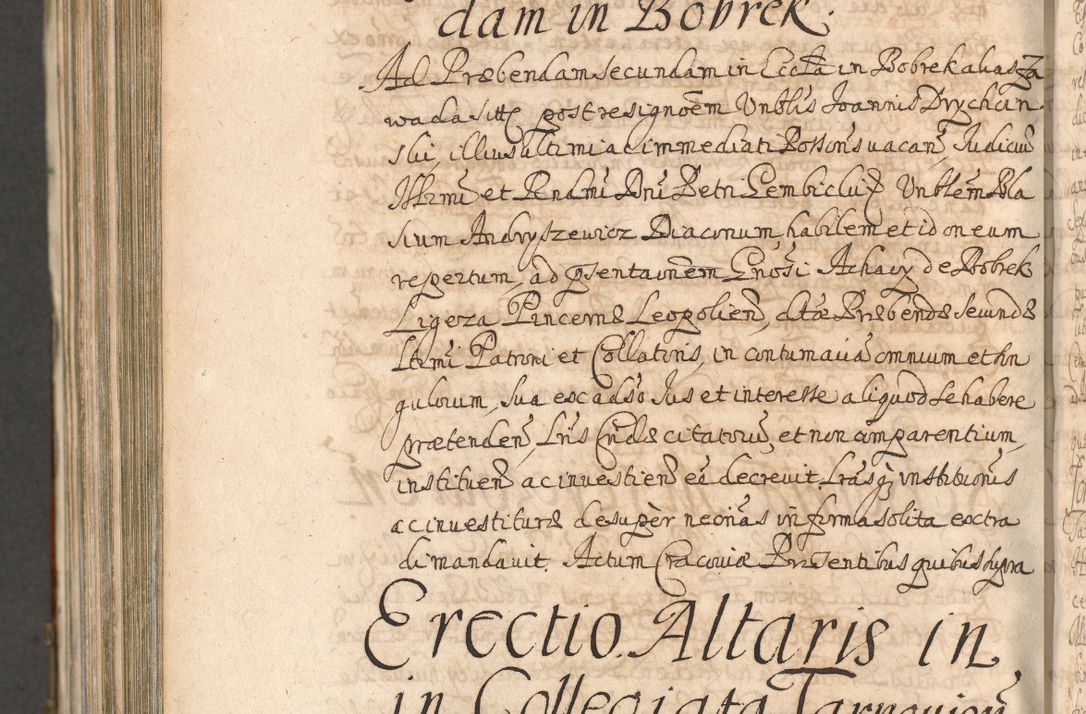 dam in Bobrek.
Ad Præbendam secundam in Eccl̃a in Bobrek alias Za
wada sittẽ post resignõem Vnblis Joannis Drychcin
ski, illius ultimi ac immediati Possonis vacan̄, Judiciũ
Illr̃mi et Rndmi Dñi Petri Gembicki Vnblem Bla
sium Andryszewicz Diaconum, habilem et idoneum
repertum, ad p̃sentaõnem Gnosi Achacy de Bobrek
Ligęza Pincernæ Leopolien̄, dictæ Præbendæ secundæ
Ltimi Patroni et Collatoris, in contumacia omnium et sin
gulorum, sua ex causo Jus et interesse aliquod se habere
prætenden̄, Lris Cridæ citatorũ, et non comparentium,
instituen̄ ac investien̄ eẽ decrevit. Lrasq̃ institutionis
ac investituræ desuper necrias in forma solita extra
di mandavit. Actum Cracoviæ Præsentibus quibus supra
Erectio Altaris in
in Collegiata Tarnovien̄